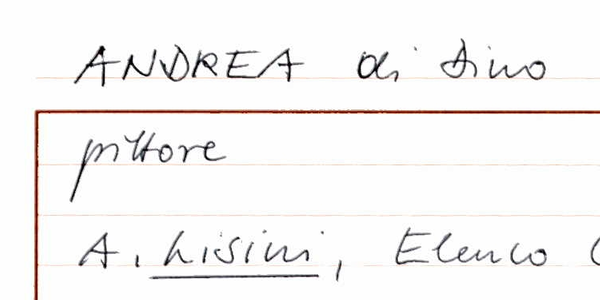 ANDREA di Dino
pittore
A. Lisini, Elenco (